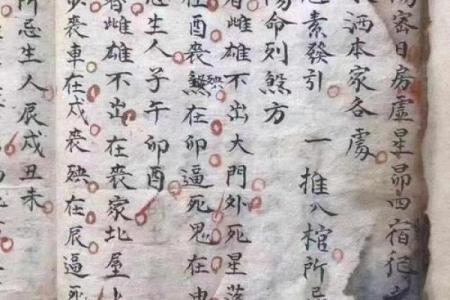 傷審日房虛星昴四宿犯
洒本家各處
忌素發引 一推入棺所忌
傷命列煞方
者雌雄不出大門外死星落
在酉喪煞在卯逼死鬼在申
忌生人子午卯酉
者雌雄不出在喪家北屋上
喪車在戌喪殃在辰逼死
所忌生人辰戌丑未